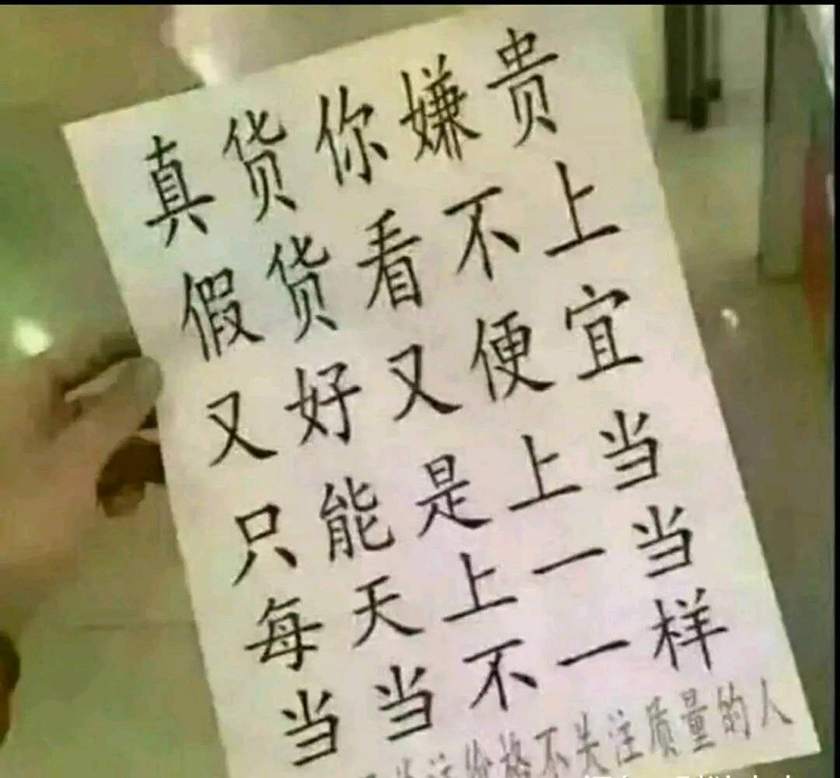 真货你嫌贵
假货看不上
又好又便宜
只能是上当
每天上一当
当当不一样
关注价格不关注质量的人